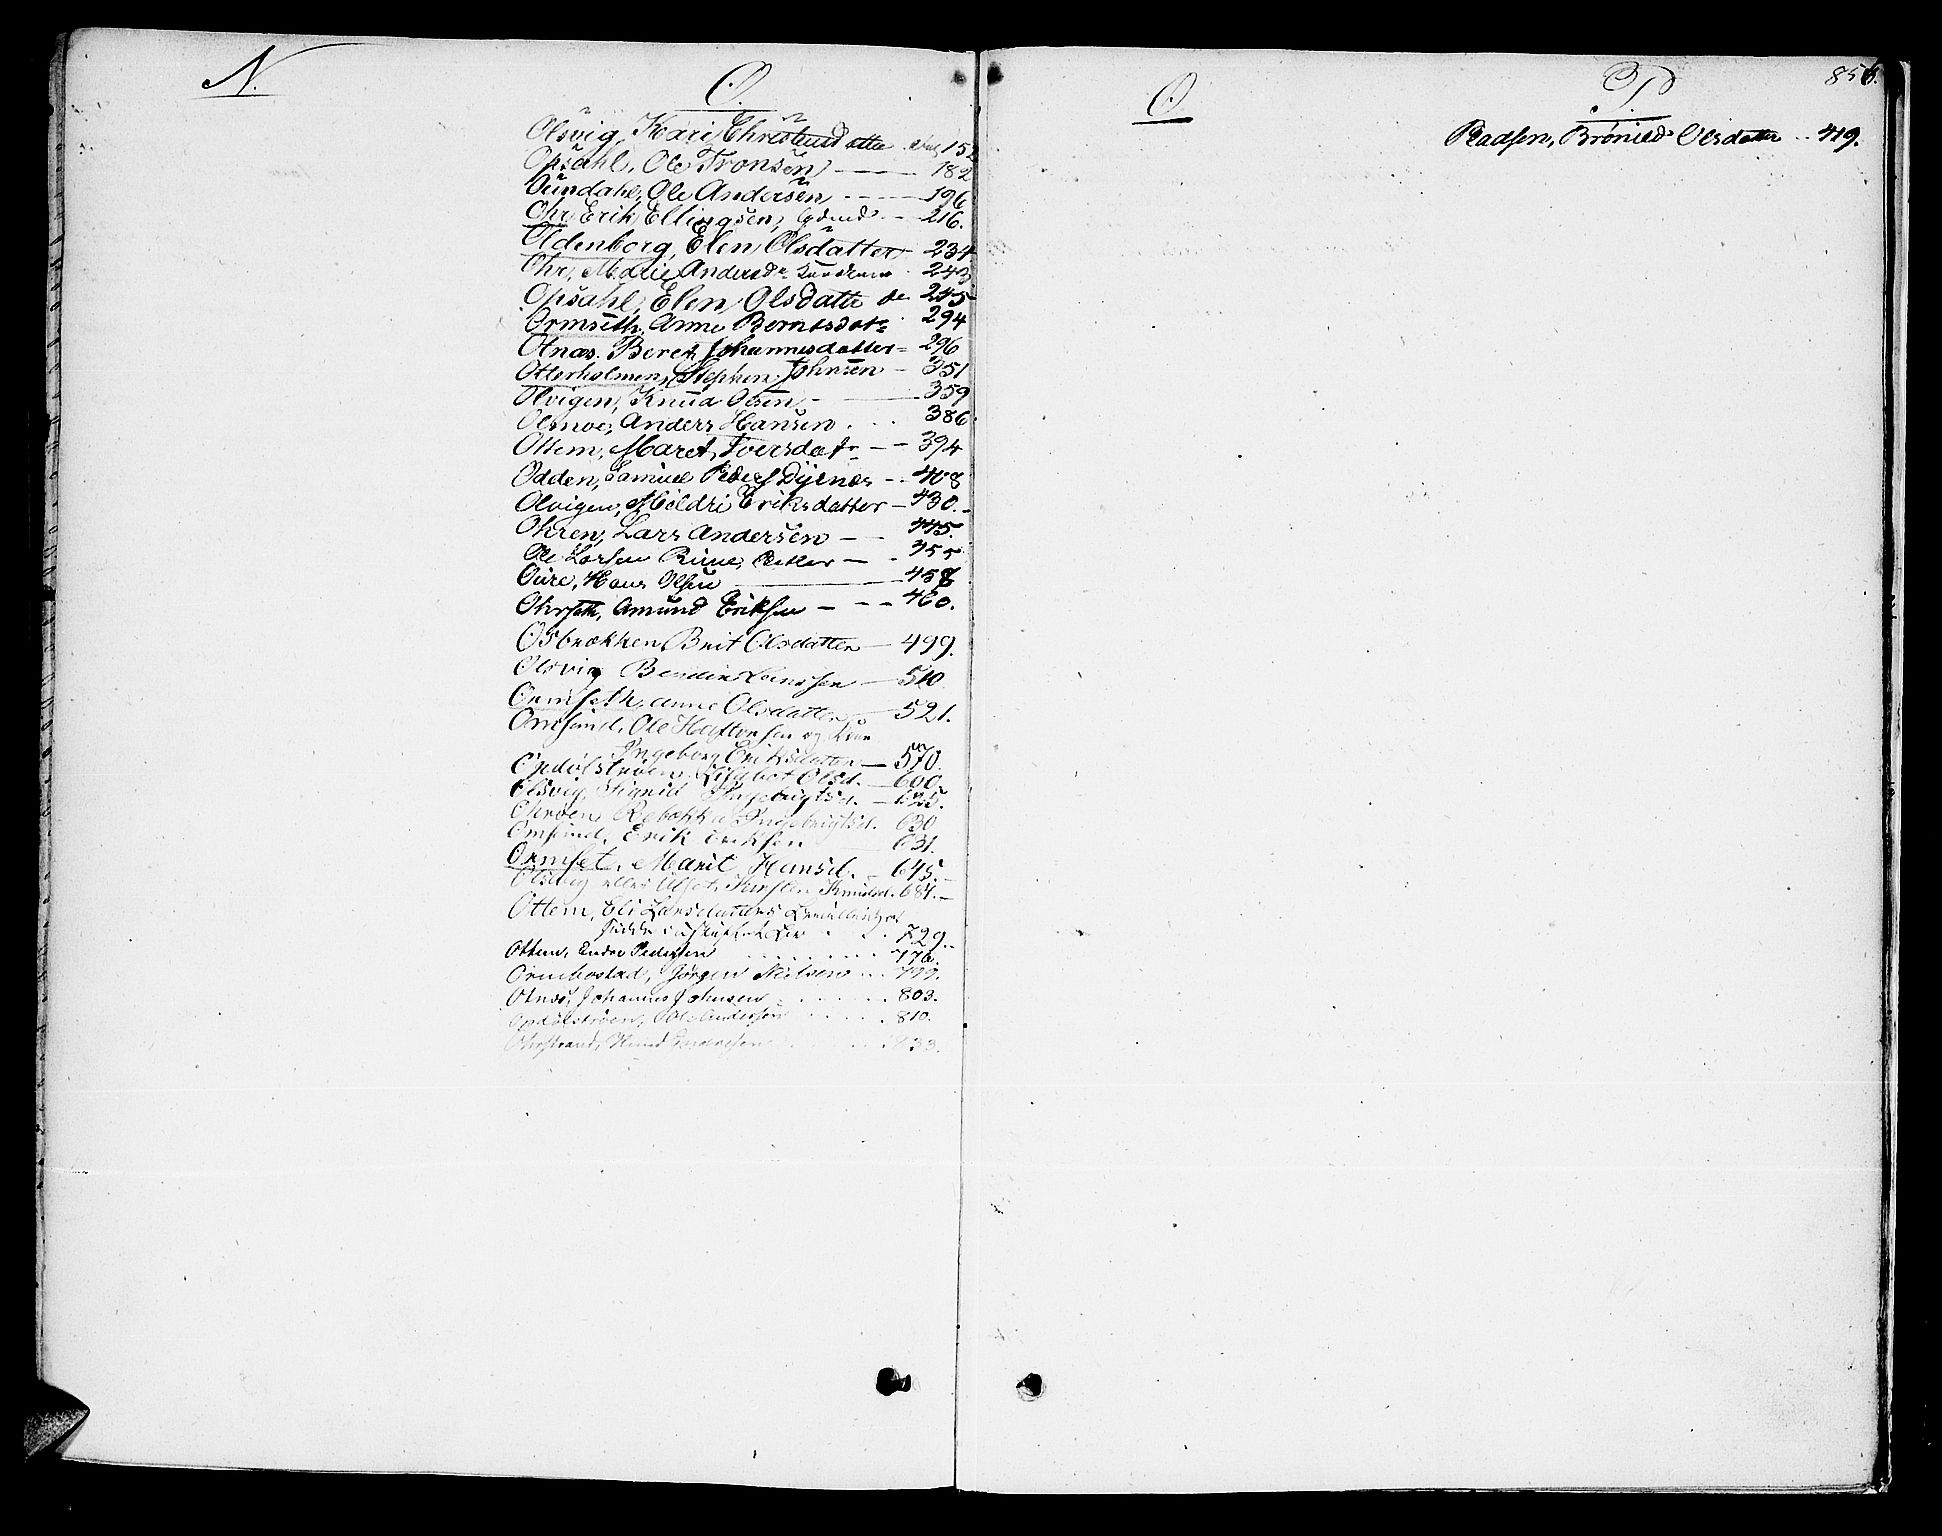 N.
O.
Olsvig, Kari Christensdatter 152
Opsahl, Ole Tronsen 182
Oundahl, Ole Andersen 196
Ohr, Erik Ellingsen, 216.
Oldenborg, Elen Olsdatter 234
Ohr, Marie Andersdr 243
Opsahl, Elen Olsdatter 245
Ormseth, Anne Berntsdatr 294
Otnæs. Beret Johannesdatter 296
Otterholmen, Stephen Johnsen 351
Olvigen, Knud Olsen 359
Olsmoe, Anders Hansen 386
Ottem, Maret Iversdatr 394
Odden, Samuel 408
Olvigen, Mildri Eriksdatter 430.
Ohren, Lars Andersen 445.
Ole Larsen 455
Oure, Hans Olsen 458
Ohrseth, Amund Eriksen 460.
Osbrækken Brit Olsdatter 499.
Olsvig Bendix Larssen 510
Ormseth, Anne Olsdatter 521.
Omsund, Ole Haftorsen og Kone
Ingeborg Eriksdatter 570.
Opdölströen, Olsd. 600.
Olsvig, Sigrid Ingebrigtsd.
Ohroen, Rebekka Ingebrigtsd. 630
Omsund, Erik Eriksen 631.
Ormset, Marit Hansd. 645.
Olsvig eller Kirsten Knudsd. 684.
Ottem, Eli Larsdatters
729.
Ottem, Endre Pedersen 776.
Ormbostad, Jørgen Nielsen 799.
Otnæs, Johannes Johnsen 803.
Opdölströen, Ole Andersen 810.
Ohrstrand, Knud 833.
O.
P
856.
Pladsen, Brønild Olsdatter 419.